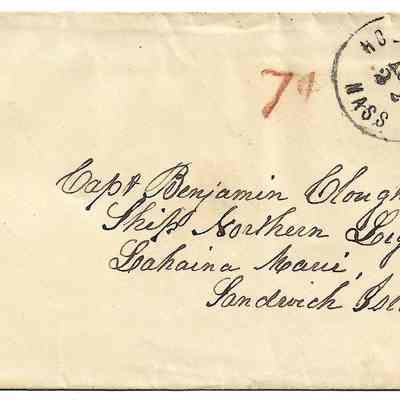 7¢
HO
2
MASS
Capt Benjamin Clough
Ship Northern Lig
Lahaina Marie,
Sandwich Isl